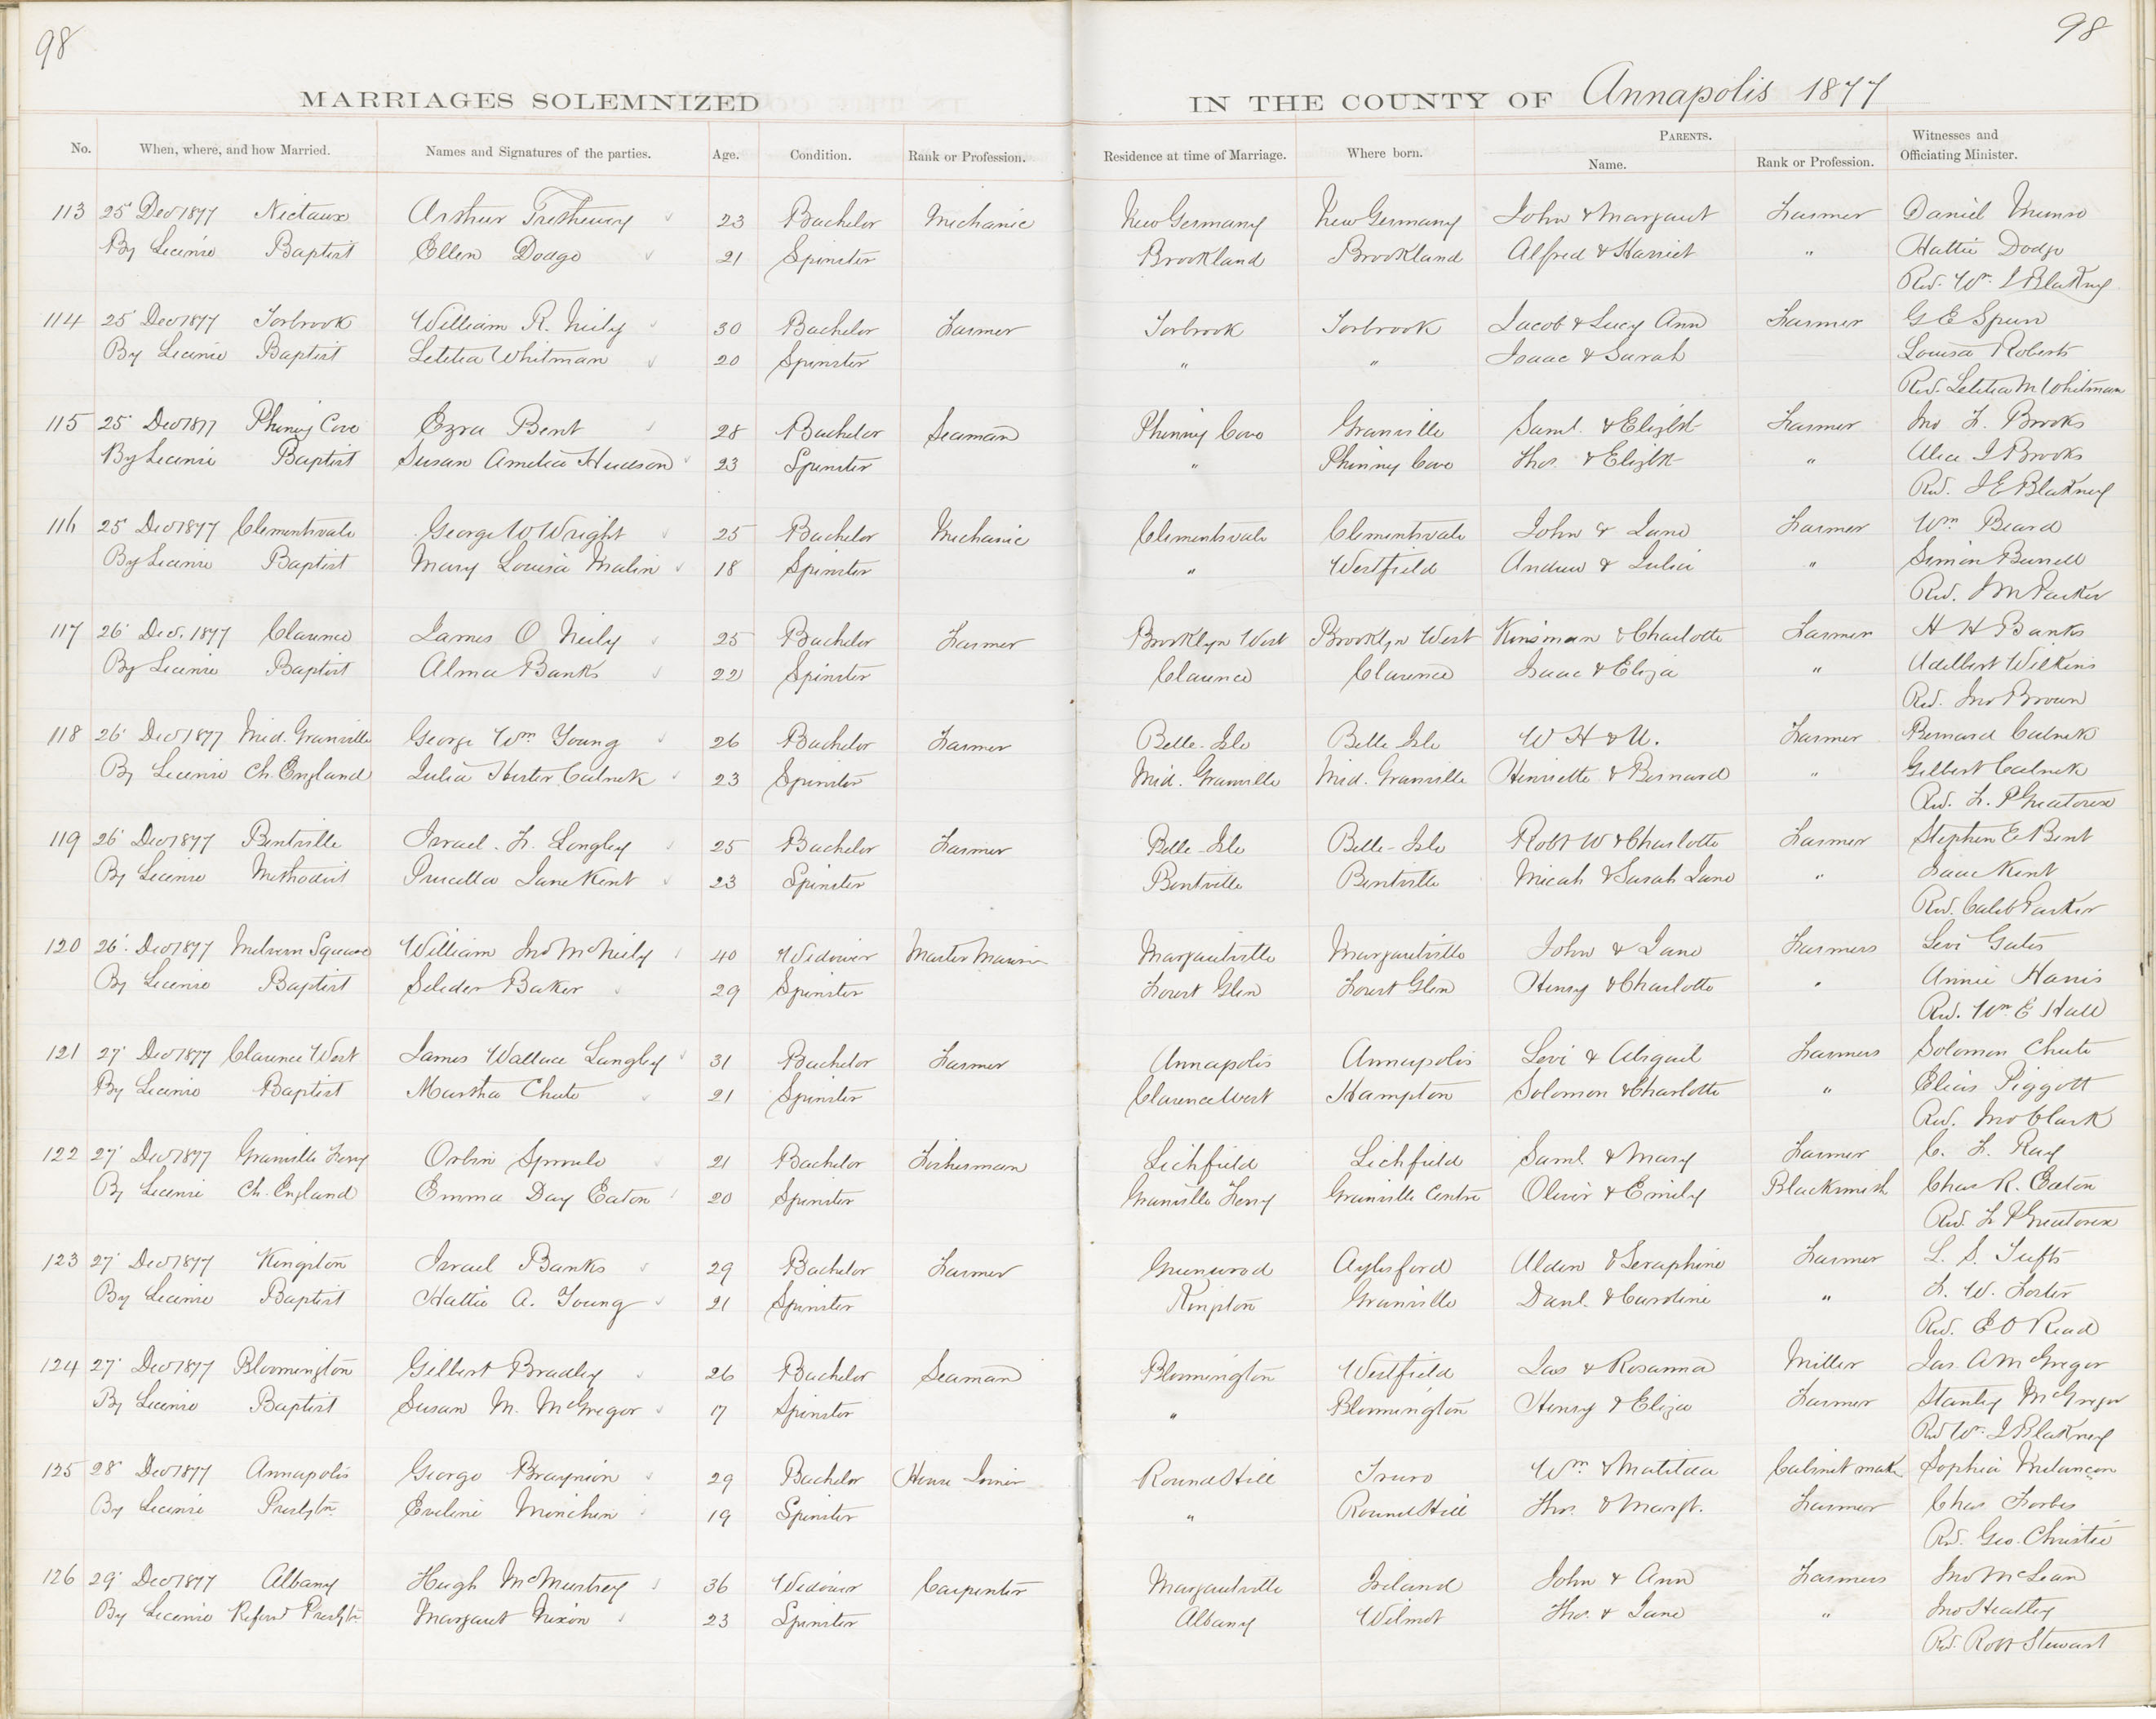 98
98
MARRIAGES SOLEMNIZED IN THE COUNTY OF Annapolis 1877
No. When, where, and how Married. Names and Signatures of the parties. Age. Condition. Rank or Profession. Residence at time of Marriage. Where born. PARENTS. Name. Rank or Profession. Witnesses and Officiating Minister.
113 25 Dec 1877 Nictaux Arthur Trethewey 23 Bachelor Mechanic New Germany New Germany John & Margaret Farmer Daniel Munro
By License Baptist Ellen Dodge 21 Spinster Brookland Brookland Alfred & Harriet " Hattie Dodge
Rev. Wm. I Blakney
114 25 Dec 1877 Torbrook William R. Neily 30 Bachelor Farmer Torbrook Torbrook Jacob & Lucy Ann Farmer G E Spurr
By License Baptist Letitia Whitman 20 Spinster " " Isaac & Sarah Louisa Roberts
Rev. Letitia M Whitman
115 25 Dec 1877 Phinney Cove Ezra Bent 28 Bachelor Seaman Phinney Cove Granville Saml. & Elizbt Farmer Jno F. Brooks
By License Baptist Susan Amelia Hudson 23 Spinster " Phinney Cove Thos. & Elizbt " Alice I Brooks
Rev. I E Blakney
116 25 Dec 1877 Clementsvale George W Wright 25 Bachelor Mechanic Clementsvale Clementsvale John & Jane Farmer Wm Beard
By License Baptist Mary Louisa Malin 18 Spinster " Westfield Andrew & Julia " Simon Burrell
Rev. J M Parker
117 26 Dec. 1877 Clarence James O Neily 25 Bachelor Farmer Brooklyn West Brooklyn West Kinsman & Charlotte Farmer H H Banks
By License Baptist Alma Banks 22 Spinster Clarence Clarence Isaac & Eliza " Adelbert Wilkins
Rev. Jno Brown
118 26 Dec 1877 Mid. Granville George Wm Young 26 Bachelor Farmer Belle-Isle Belle Isle W H & U. Farmer Bernard Calnek
By License Ch. England Julia Hester Calnek 23 Spinster Mid. Granville Mid. Granville Henriette & Bernard " Gilbert Calnek
Rev. F. P Greatorex
119 26 Dec 1877 Bentville Israel. F. Longley 25 Bachelor Farmer Belle-Isle Belle-Isle Robt W & Charlotte Farmer Stephen E Bent
By License Methodist Priscilla Jane Kent 23 Spinster Bentville Bentville Micah & Sarah Jane " Isaac Kent
Rev. Caleb Parker
120 26 Dec 1877 Melvern Square William Jno McNeily 40 Widower Master Marin Margaretville Margaretville John & Jane Farmers Levi Gates
By License Baptist Seleder Baker 29 Spinster Forest Glen Forest Glen Henry & Charlotte " Annie Harris
Rev. Wm. E Hall
121 27 Dec 1877 Clarence West James Wallace Langley 31 Bachelor Farmer Annapolis Annapolis Levi & Abigail Farmers Solomon Chute
By License Baptist Martha Chute 21 Spinster Clarence West Hampton Solomon & Charlotte " Elias Piggott
Rev. Jno Clark
122 27 Dec 1877 Granville Ferry Orbin Sproule 21 Bachelor Fisherman Lichfield Lichfield Saml & Mary Farmer C. F. Ray
By License Ch. England Emma Day Eaton 20 Spinster Granville Ferry Granville Centre Oliver & Emily Blacksmish Chas R. Eaton
Rev. F P Greatorex
123 27 Dec 1877 Kingston Israel Banks 29 Bachelor Farmer Greenwood Aylesford Alden & Seraphine Farmer L. S. Tufts
By License Baptist Hattie A. Young 21 Spinster Kingston Granville Danl. & Caroline " F. W. Foster
Rev. E O Read
124 27 Dec 1877 Bloomington Gilbert Bradley 26 Bachelor Seaman Bloomington Westfield Jas & Rosanna Miller Jas. A McGregor
By License Baptist Susan M. McGregor 17 Spinster " Bloomington Henry & Eliza Farmer Stanley McGregor
Rev Wm. I Blakney
125 28 Dec 1877 Annapolis George Braynion 29 Bachelor House Joiner Round Hill Truro Wm & Matilda Cabinet make Sophia Melancon
By License Presbytn. Eveline Minchin 19 Spinster " Round Hill Thos. & Margt. Farmer Chas Forbes
Rev. Geo. Christie
126 29 Dec 1877 Albany Hugh McMurtrey 36 Widower Carpenter Margaretville Ireland John & Ann Farmers Jno McLean
By License Reford Presbytn Margaret Nixon 23 Spinster Albany Wilmot Thos. & Jane " Jno Heatley
Rev. Robt Stewart